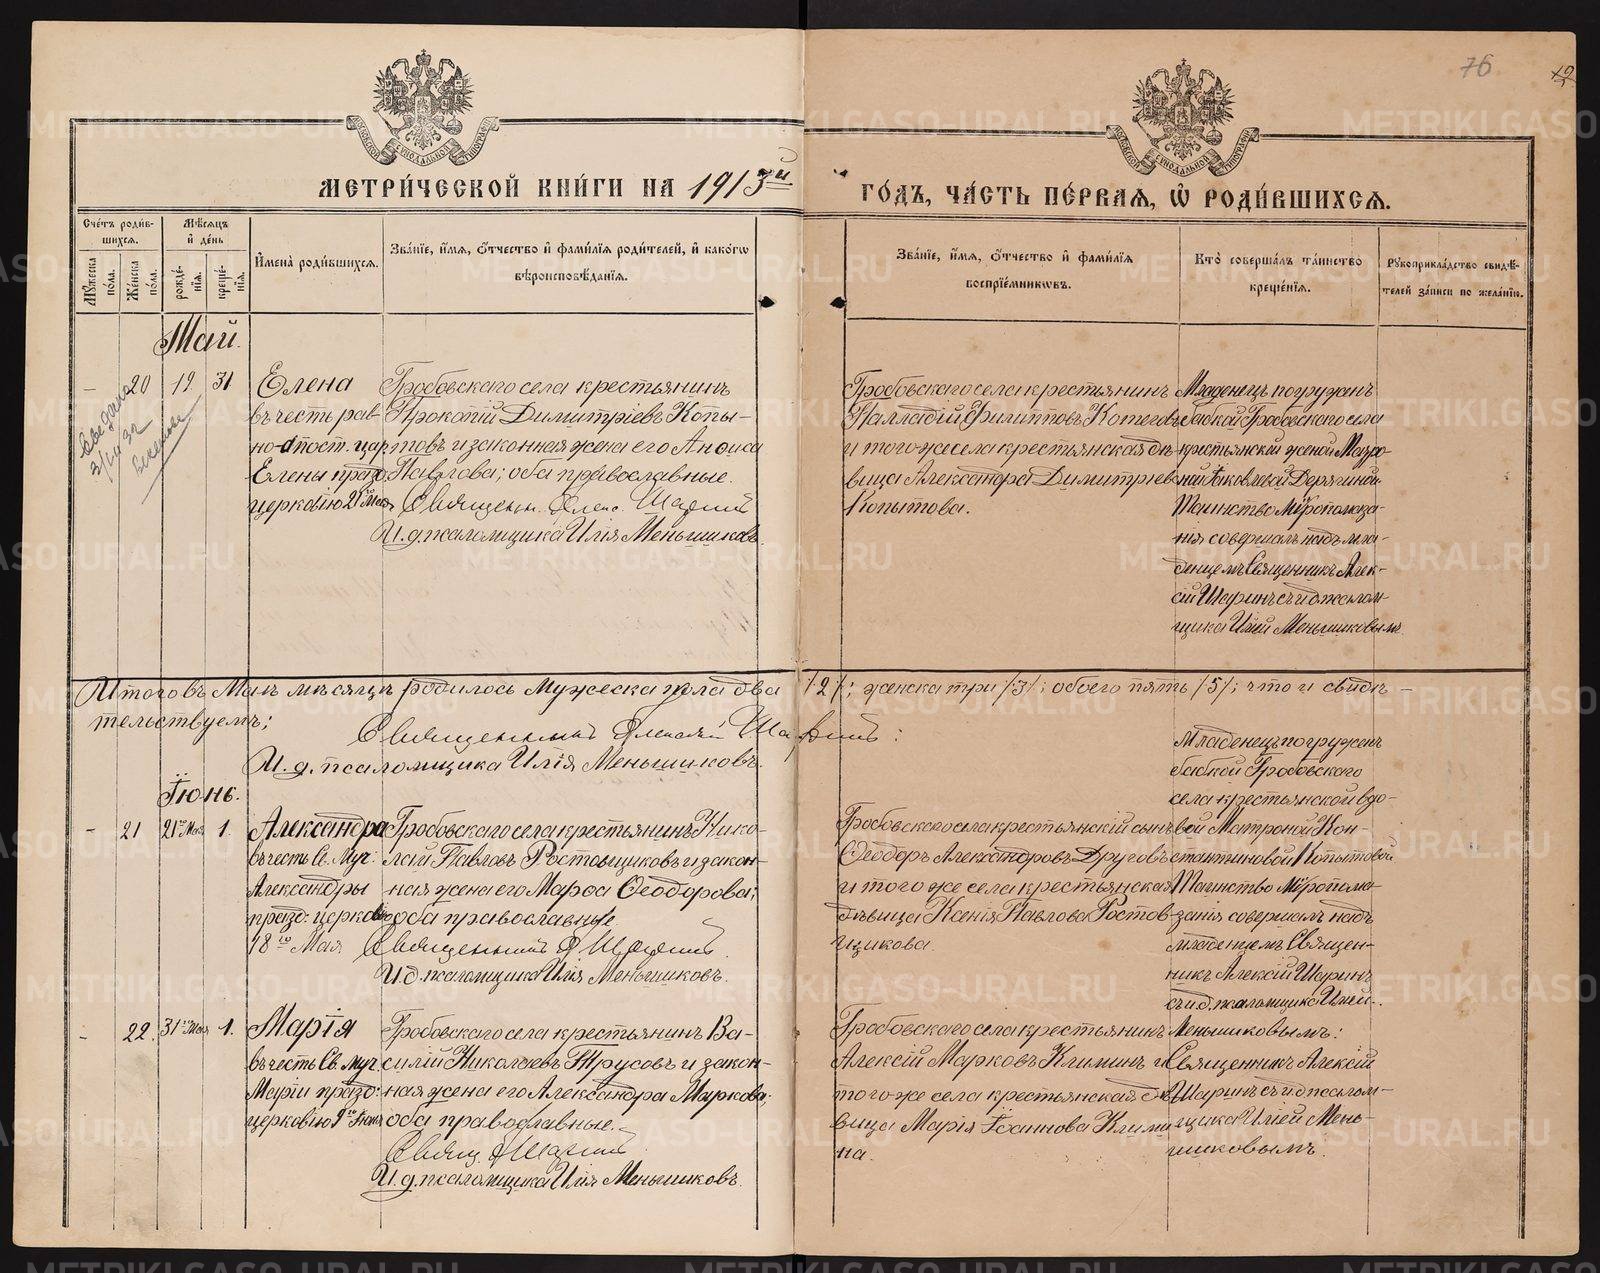 76
МЕТРИ́ЧЕСКОЙ КНИ́ГИ НА 1913й
ГО́ДЪ, ЧА́СТЬ ПЕ́РВАЯ, Ѡ҆ РОДИ́ВШИХСЯ.
Сче́тъ роди́в-
шихся.
Мѣ́сяцъ
и҆ де́нь
Мꙋ́жеска
по́ла.
Же́нска
по́ла.
рожде́-
нїя.
креще́-
нїя.
И҆мена̀ роди́вшихся.
Зва́нїе, и҆́мя, ѻ҆́тчество и҆ фами́лїя роди́телей, и҆ како́гѡ
вѣроисповѣ́данїя.
Зва́нїе, и҆́мя, ѻ҆́тчество и҆ фами́лїя
воспрїе́мникѡвъ.
Кто̀ соверша́лъ та́инство
креще́нїя.
Рꙋкоприкла́дство свидѣ́-
телей за́писи по жела́нїю.
Май.
- 20 19 31
Елена
въ честь рав-
но-апост. цар.
Елены празд.
церковію 21го Мая
Гробовскаго села крестьянинъ
Прокопій Димитріевъ Копы-
товъ и законная жена его Анѳиса
Павлова; оба православные.
Священн. Алекс. Шаринъ
И.д. псаломщика Илія Меньшиковъ.
Гробовскаго села крестьянинъ
Палладій Филипповъ Котеговъ
и того же села крестьянская дѣ-
вица Александра Димитріева
Копытова.
Младенецъ погруженъ
бабкой Гробовскаго села
крестьянской женой Мавро-
ній Іаковлевой Дерягиной.
Таинство Мѵропомаза-
нія совершалъ надъ мла-
денцемъ Священникъ Алек-
сій Шаринъ съ и.д. псалом-
щика Иліей Меньшиковымъ.
Итого въ Маѣ мѣсяцѣ родилось мужеска пола два /2/; женска три /3/; обоего пять /5/; что и свидѣ-
тельствуемъ;
Священникъ Алексій Шаринъ:
И.д. псаломщика Илія Меньшиковъ.
Іюнь.
- 21 21го Мая 1.
Александра
въ честь Св. Муч.
Александры
празд: церков.
18го Мая
Гробовскаго села крестьянинъ Нико-
лай Павловъ Ростовщиковъ и закон-
ная жена его Марѳа Ѳеодорова;
оба православные
Священникъ А. Шаринъ.
И.д. псаломщика Илія Меньшиковъ.
Гробовскаго села крестьянскій сынъ
Ѳеодоръ Александровъ Друговъ
и того же села крестьянская
дѣвица Ксенія Павлова Ростов-
щикова.
Младенецъ погруженъ
бабкой Гробовскаго
села крестьянской вдо-
вой Матроной Кон-
стантиновой Копытовой
Таинство Мѵропома-
занія совершалъ надъ
младенцемъ Священ-
никъ Алексій Шаринъ
съ и.д. псаломщика Иліей
Меньшиковымъ:
- 22. 31го Мая 1.
Марія
въ честь Св. муч.
Маріи празд:
церковію 9го Іюня
Гробовскаго села крестьянинъ Ва-
силій Николаевъ Трусовъ и закон-
ная жена его Александра Маркова;
оба православные.
Свящ. А Шаринъ
И.д. псаломщика Илія Меньшиковъ.
Гробовскаго села крестьянинъ
Алексій Марковъ Климинъ и
того же села крестьянская дѣ-
вица Марія Іоаннова Клими-
на.
Священникъ Алексій
Шаринъ съ и.д. псалом-
щика Иліей Мень-
шиковымъ.
METRIKI.GASO-URAL.RU